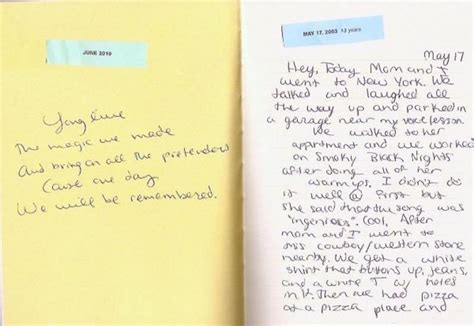 JUNE 2010
Long live
The magic we made
And bring on all the pretenders
Cause one day
We will be remembered.
MAY 17, 2003 13 years
May 17
Hey, Today Mom and I
went to New York. We
talked and laughed all
the way up and parked in
a garage near my voice lesson
We walked to her
apartment and we worked
on Smoky Black Nights
after doing all of her
warmups. I didn't do
it well @ first but
she said that the song was
"ingenious". Cool. After
mom and I went to
cowboy/western store
nearby. We got a white
shirt that buttons up, jeans,
and a white T w/ holes
in it. Then we had pizza
at a pizza place and